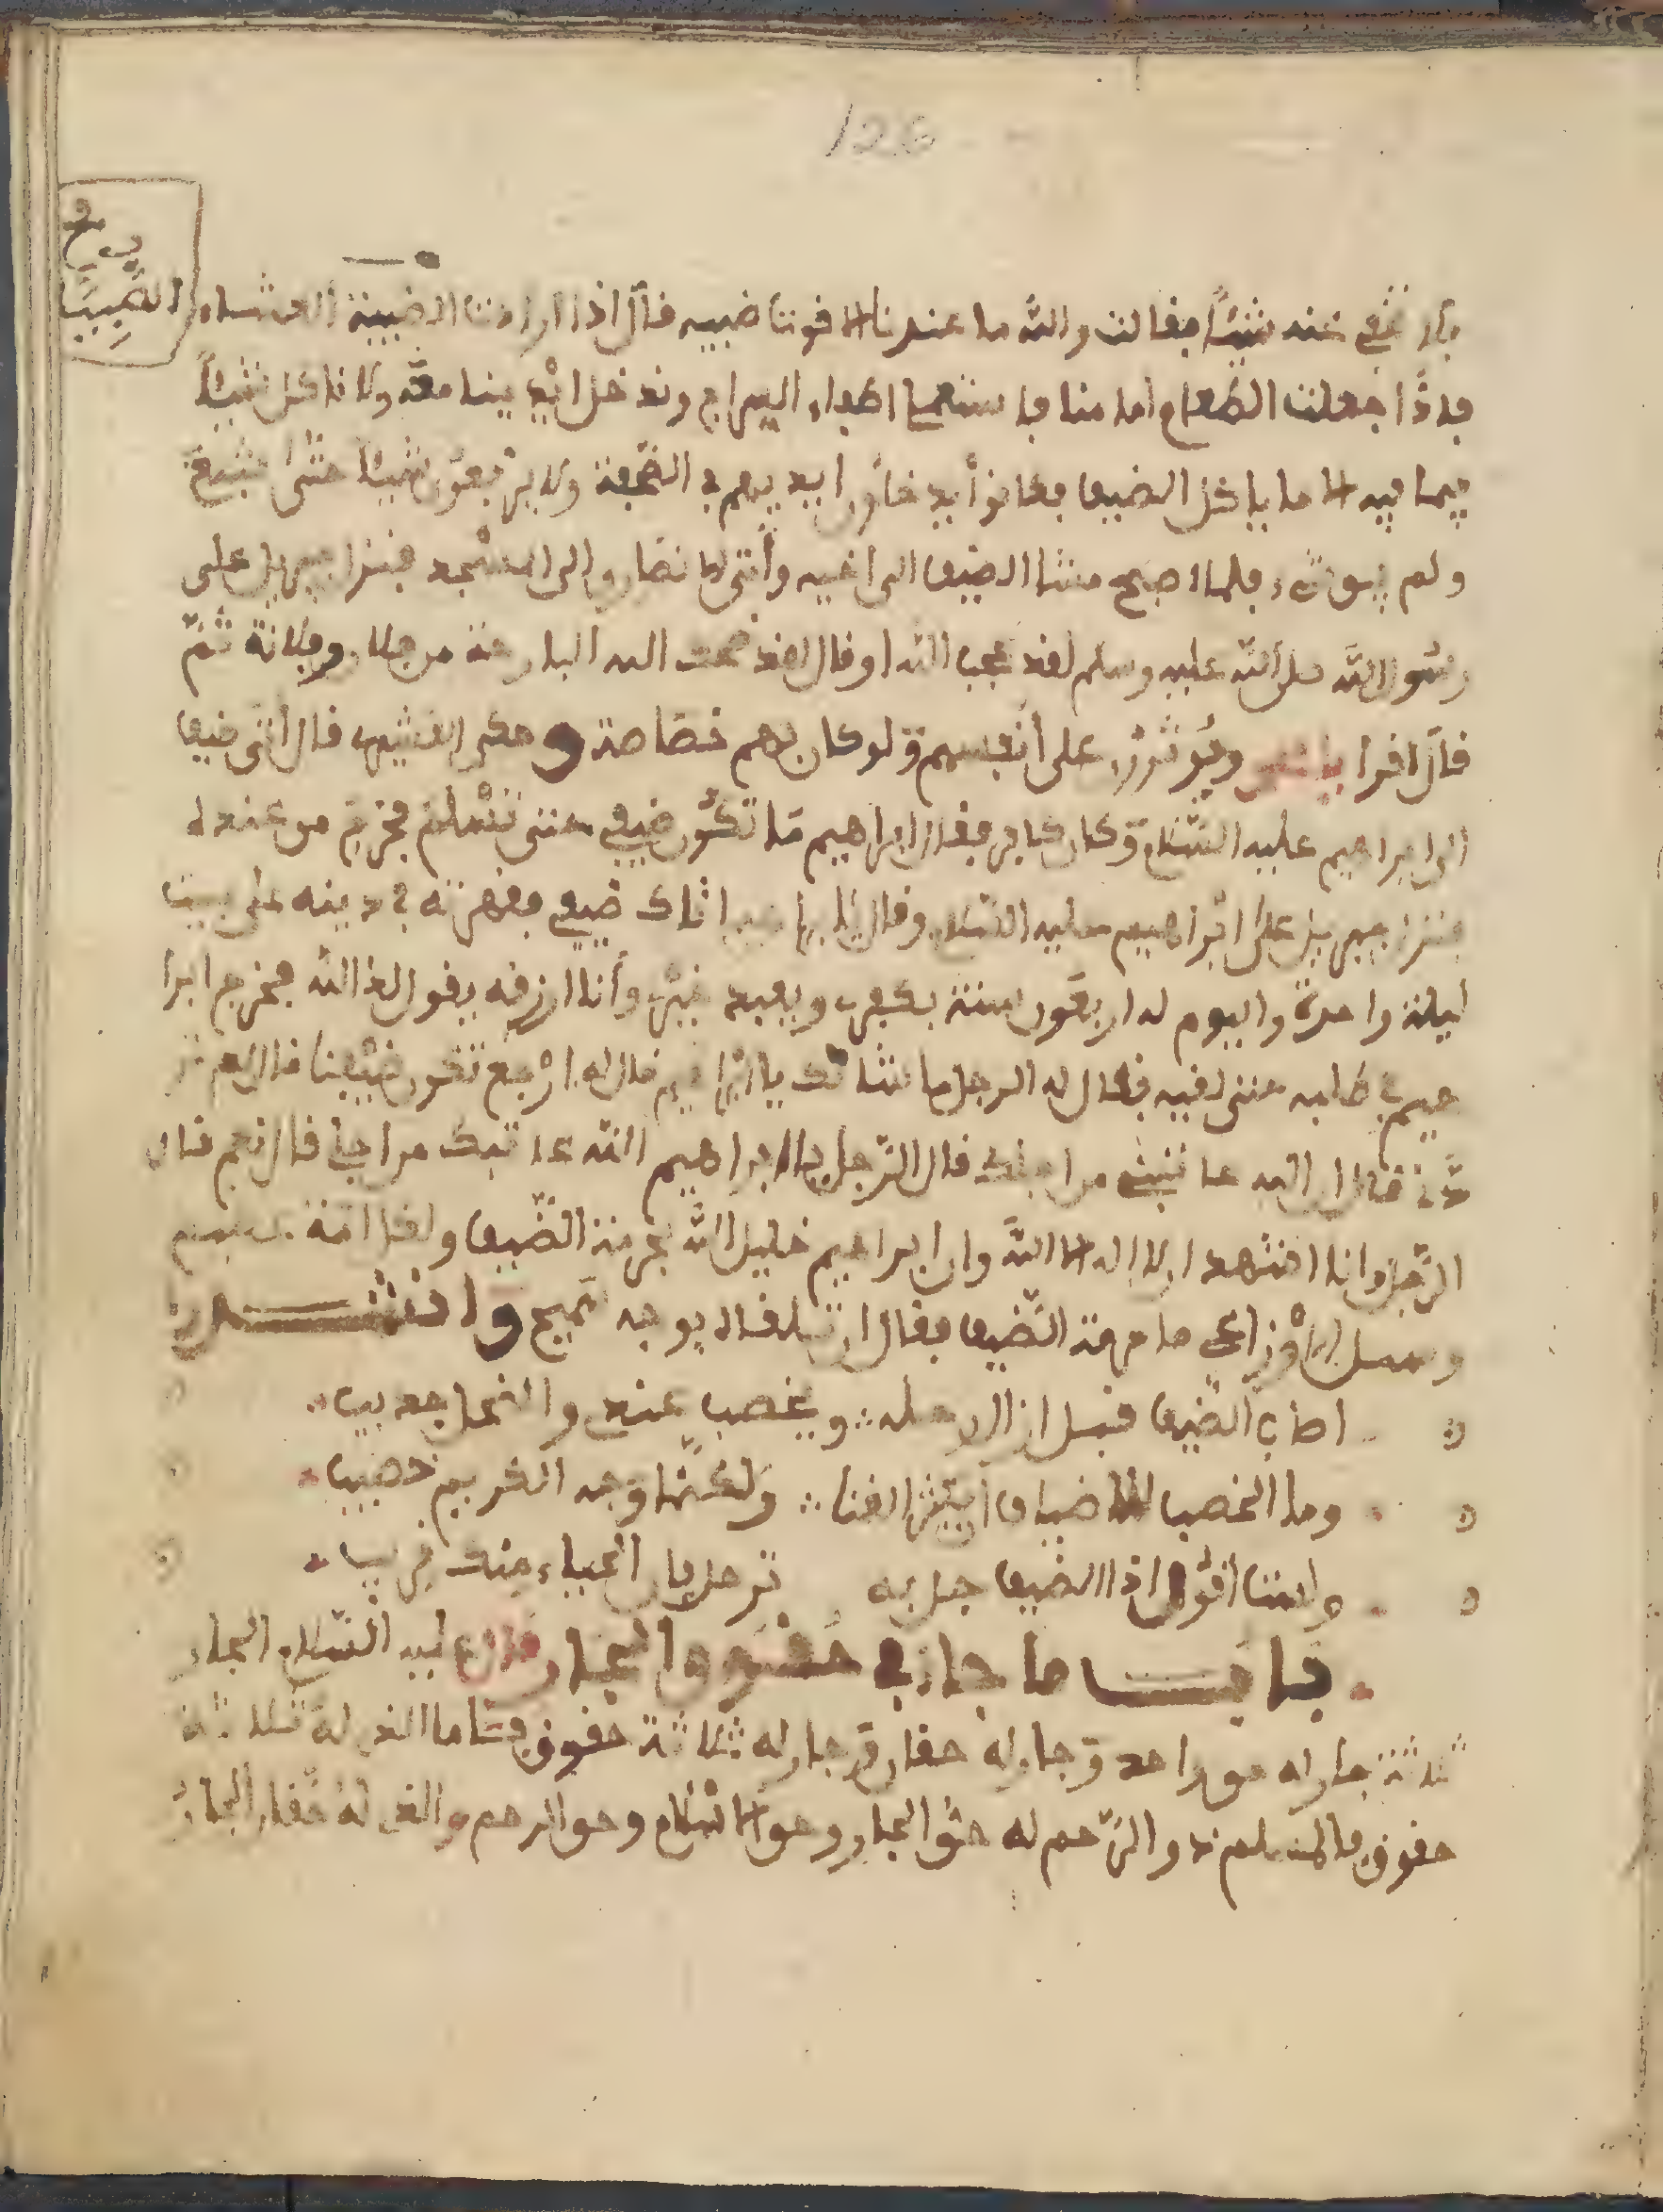 126
الصِّبيَا
فلا تخفي عنه شيئاً فقالت والله ما عندنا الا قوت صبيه قال اذا ارادت الاصبية العشاء
فاذا جعلت الطعام امامنا فا اطفاء السراج وندخل ايدينا معه ولا ناكل شيئاً
فيما فيه الا ما ياكل الضيف فكانوا يدخلون ايديهم في القصعة ولا يرفعون شيئا حتى شبع
ولم يبق شيء فلما اصبح مشا الضيف الى اخيه وأتى الانصاري الى المسجد فنزل جبريل على
رسول الله صلى الله عليه وسلم لقد عجب الله او قال لقد ضحك الله البارحة من فلان وفلانة ثمّ
قال اقرا ويؤثرون على أنفسهم ولو كان بهم خصاصة وحكى القشيري قال أتى ضيف
الى ابراهيم عليه السّلام وكان كافر فقال ابراهيم ما تكون ضيفي حتى تسلم فخرج من عنده
فنزل جبريل على ابراهيم عليه السّلام وقال يا ابراهيم اتاك ضيفي فقهرته في دينه على بيت
ليلة واحدة واليوم له اربعون سنة يكفر بي ويعبد غيري وأنا ارزقه يقول لك الله فخرج ابرا
هيم في طلبه حتى لقيه فقال له الرجل ما شانك يا ابراهيم قال له ارجع تكون ضيفنا قال لم
ذا قال ان الله عاتبني من اجلك قال الرّجل يا ابراهيم الله عاتبك من اجلي قال نعم قال
الرّجل وانا اشهد ان لا اله الا الله وان ابراهيم خليل الله بحرمة الضّيف
وسئل الاوزاعي ما حرمة الضّيف فقال ان تلقاه بوجه سميح وانشدوا
اضاحك الضّيف قبل انزال رحله ويخصب عندي والمحل جديب
وما الخصب للاضياف ان يكثر القرا ولكنّما وجه الكريم خصيب
ولست اقول اذا الضيف جل به ترحل فان الحياء منك قريب
باب ما جاء في حقوق الجار قال عليه السّلام الجار
ثلاثة جار له حق واحد وجار له حقان وجار له ثلاثة حقوق فاما الذي له ثلاثة
حقوق فالمسلم ذو الرّحم له حقّ الجار وحق الاسلام وحق الرحم والذي له حقان الجارُ